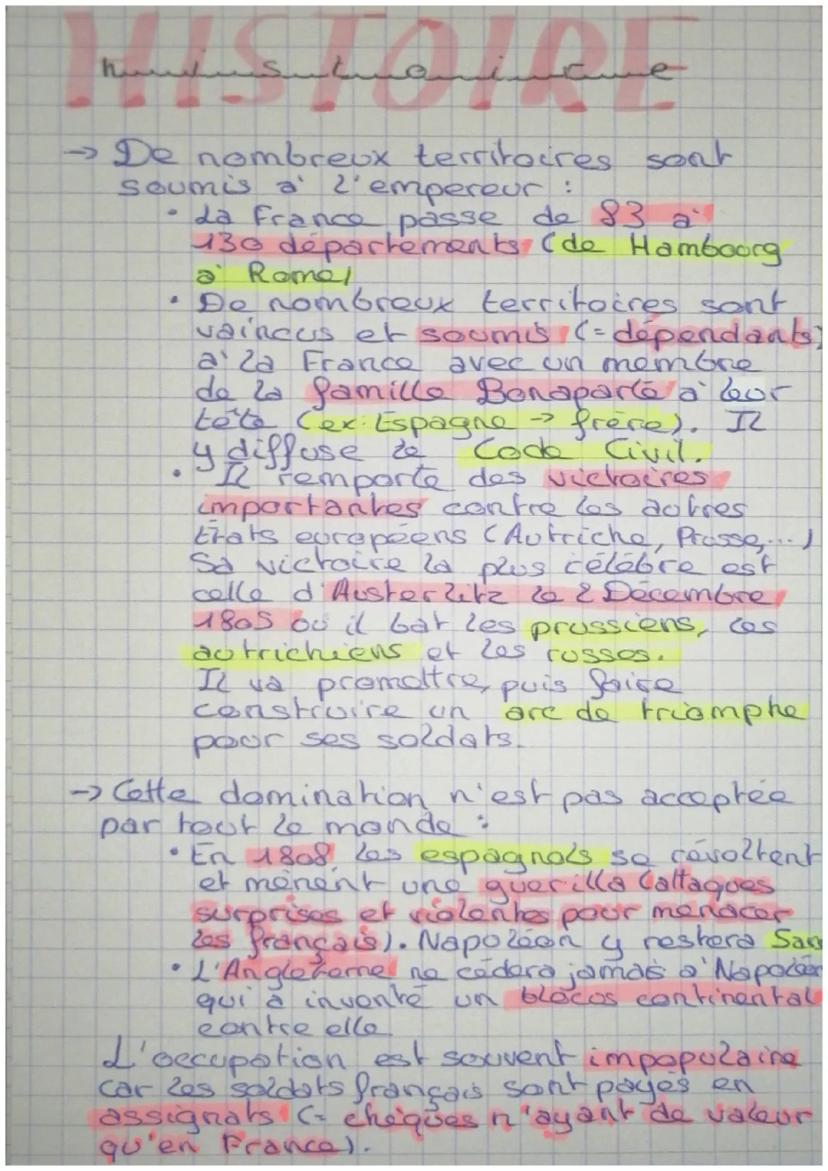 HISTOIRE
histoire
→ De nombreux territoires sont
soumis à l'empereur :
• La France passe de 83 à
130 départements (de Hambourg
à Rome)
• De nombreux territoires sont
vaincus et soumis (= dépendants)
à la France avec un membre
de la famille Bonaparte à leur
tête (ex: Espagne → frère). Il
y diffuse le Code Civil.
• Il remporte des victoires
importantes contre les autres
États européens (Autriche, Prusse,...)
Sa victoire la plus célèbre est
celle d'Austerlitz le 2 Décembre
1805 où il bat les prussiens, les
autrichiens et les russes.
Il va promettre, puis faire
construire un arc de triomphe
pour ses soldats.
→ Cette domination n'est pas acceptée
par tout le monde :
• En 1808, les espagnols se révoltent
et mènent une guerilla (attaques
surprises et violentes pour menacer
les français). Napoléon y restera
• L'Angleterre ne cédera jamais à Napoléon
qui a inventé un blocus continental
contre elle.
L'occupation est souvent impopulaire
car les soldats français sont payés en
assignats (= chèques n'ayant de valeur
qu'en France).